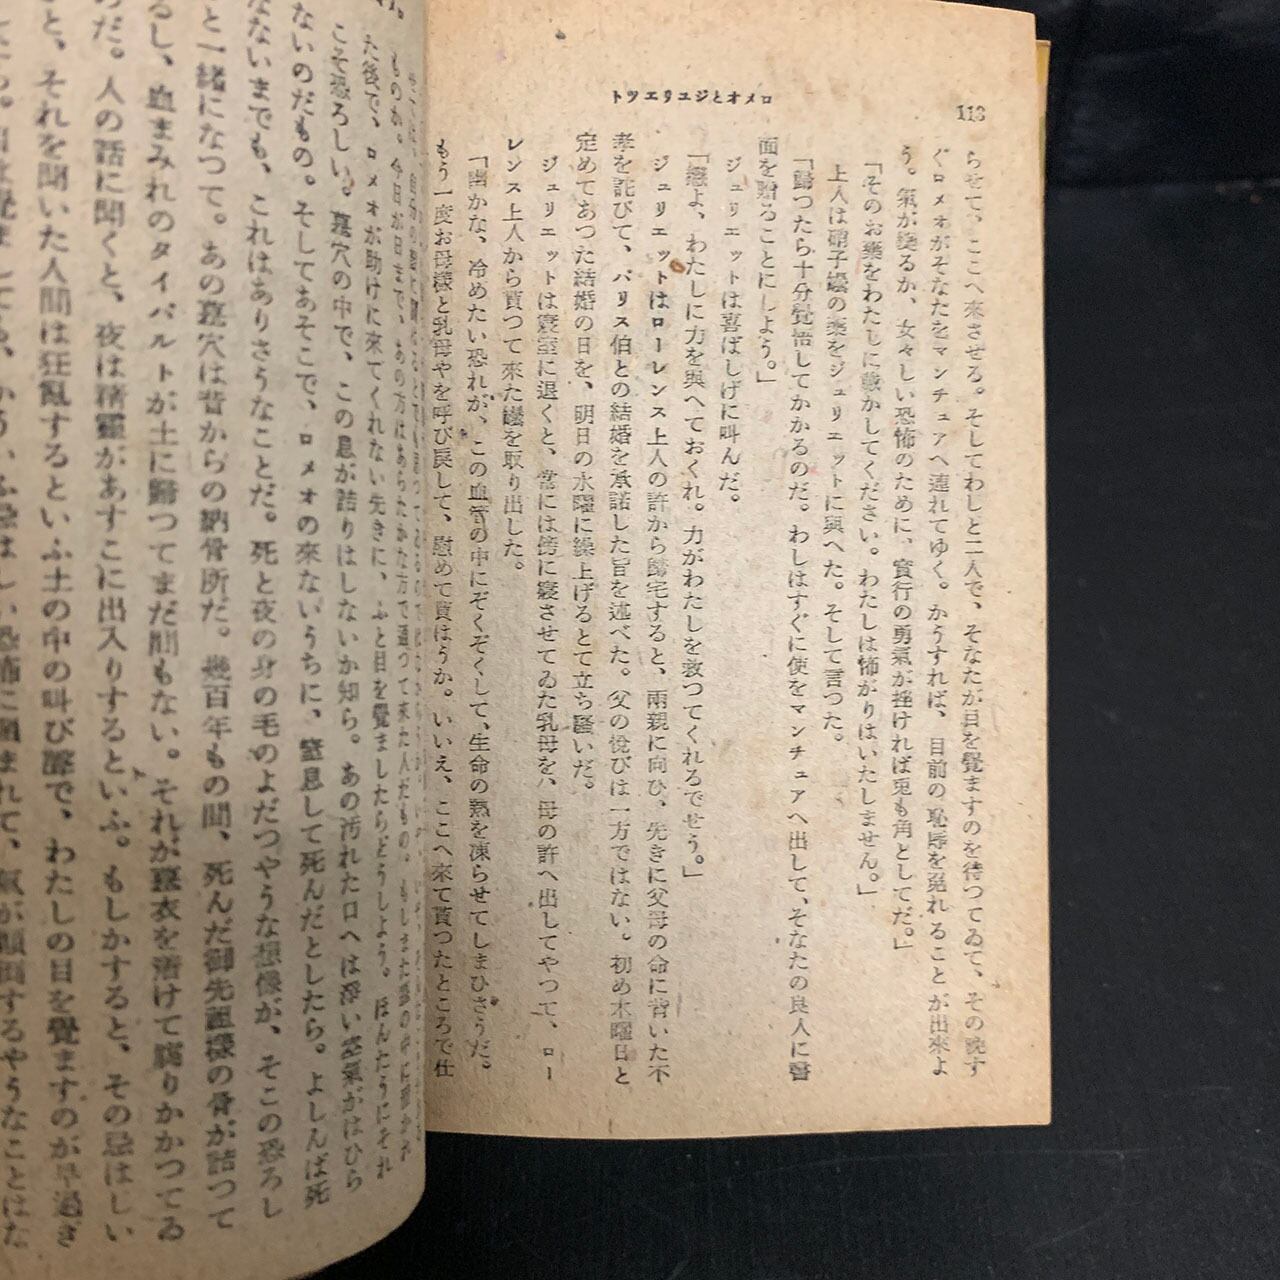 ロメオとジユリエツト
113
らせて、ここへ來させる。そしてわしと二人で、そなたが目を覺ますのを待つてゐて、その晩す
ぐロメオがそなたをマンチュアへ連れてゆく。かうすれば、目前の恥辱を免れることが出來よ
う。氣が變るか、女々しい恐怖のために、實行の勇氣が挫ければ兎も角としてだ。」
「そのお藥をわたしに戴かしてください。わたしは怖がりはいたしません。」
上人は硝子罎の藥をジュリエットに與へた。そして言つた。
「歸つたら十分覺悟してかかるのだ。わしはすぐに使をマンチュアへ出して、そなたの良人に書
面を贈ることにしよう。」
ジュリエットは喜ばしげに叫んだ。
「戀よ、わたしに力を與へておくれ。力がわたしを救つてくれるでせう。」
ジュリエットはローレンス上人の許から歸宅すると、兩親に向ひ、先きに父母の命に背いた不
孝を詫びて、パリス伯との結婚を承諾した旨を述べた。父の悅びは一方ではない。初め木曜日と
定めてあつた結婚の日を、明日の水曜に繰上げるとて立ち騷いだ。
ジュリエットは寢室に退くと、常には傍に寢させてゐた乳母を、母の許へ出してやつて、ロー
レンス上人から貰つて來た罎を取り出した。
「幽かな、冷めたい恐れが、この血管の中にぞくぞくして、生命の熱を凍らせてしまひさうだ。
もう一度お母樣と乳母やを呼び戾して、慰めて貰はうか。いいえ、ここへ來て貰つたところで仕
ものか。今日が日まで、あの方はあらたかな方で通つて來た人だもの。もしまた
た後で、ロメオが助けに來てくれない先きに、ふと目を覺ましたらどうしよう。ほんたうにそれ
こそ恐ろしい。墓穴の中で、この息が詰りはしないか知ら。あの汚れた口へは淨い空氣がはひら
ないのだもの。そしてあそこで、ロメオの來ないうちに、窒息して死んだとしたら。よしんば死
なないまでも、これはありさうなことだ。死と夜の身の毛のよだつやうな想像が、そこの恐ろし
と一緒になつて。あの墓穴は昔からの納骨所だ。幾百年もの間、死んだ御先祖樣の骨が詰つて
るし、血まみれのタイバルトが土に歸つてまだ間もない。それが壽衣を着けて腐りかかつてゐ
のだ。人の話に聞くと、夜は精靈があすこに出入りするといふ。もしかすると、その忌はしい
と、それを聞いた人間は狂亂するといふ土の中の叫び聲で、わたしの目を覺ますのが早過ぎ